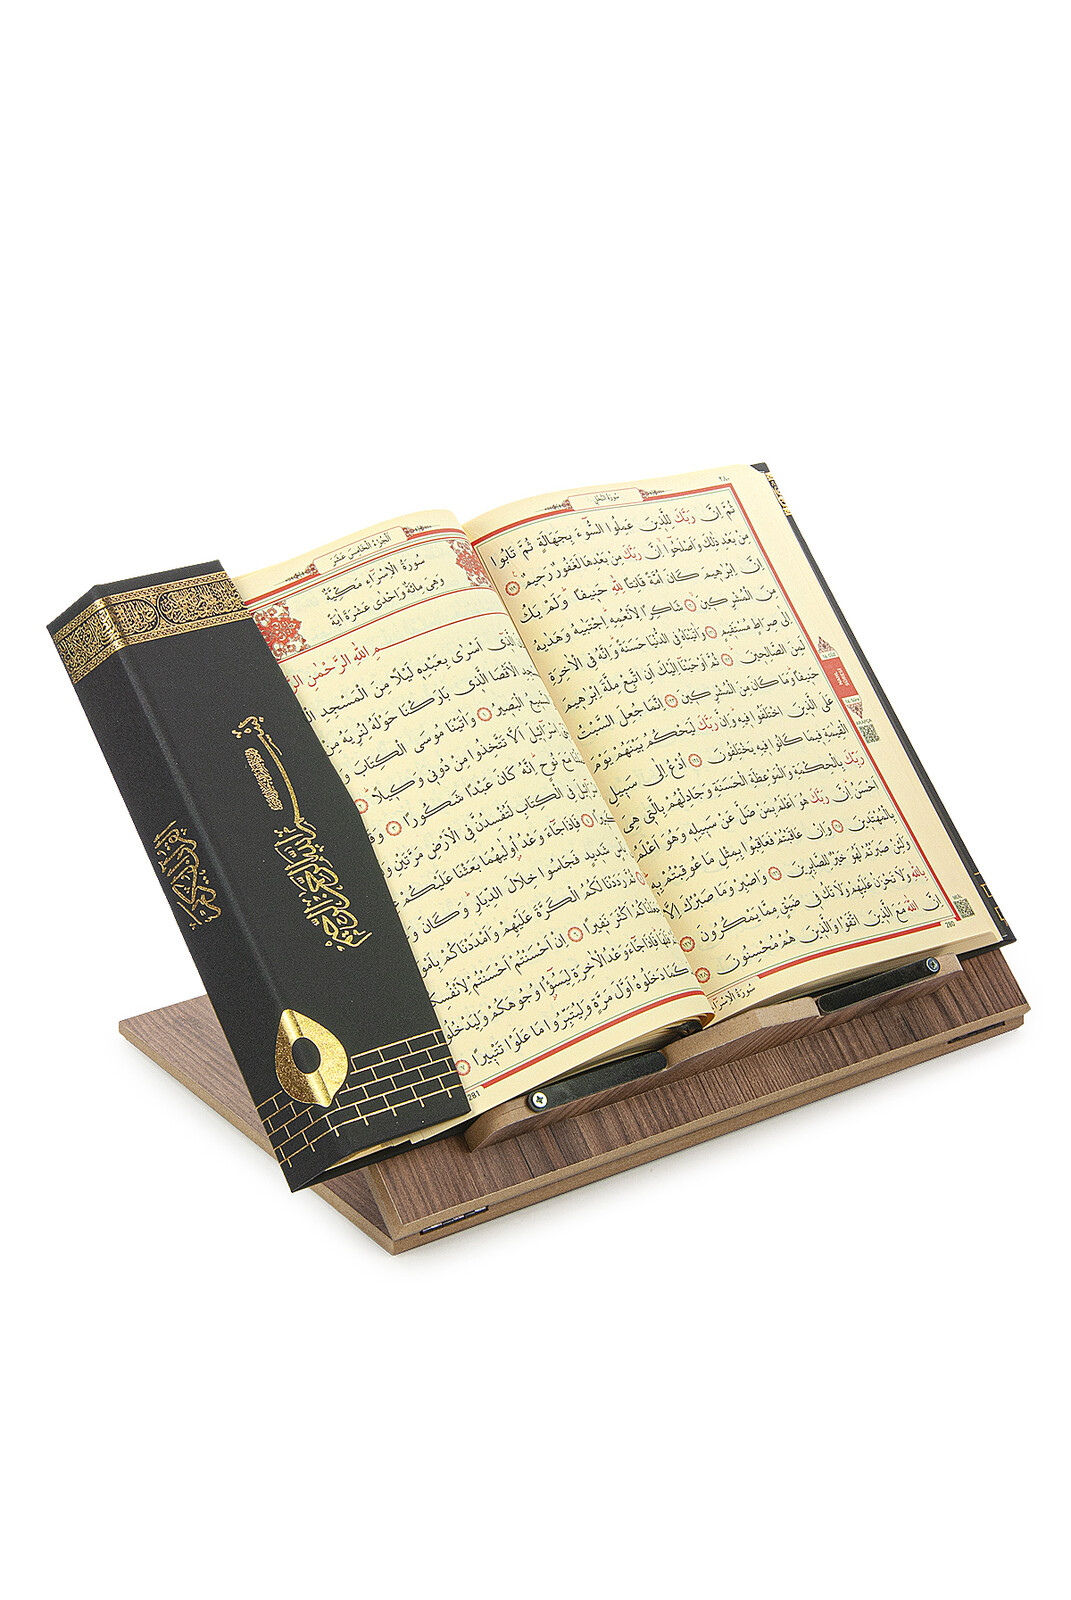 ٢٨٠
سُورَةُ النَّحْلِ
ثُمَّ اِنَّ رَبَّكَ لِلَّذٖينَ عَمِلُوا السُّٓوءَ بِجَهَالَةٍ ثُمَّ تَابُوا
مِنْ بَعْدِ ذٰلِكَ وَاَصْلَحُٓوا اِنَّ رَبَّكَ مِنْ بَعْدِهَا لَغَفُورٌ رَحٖيمٌ ١١٩
اِنَّ اِبْرٰهٖيمَ كَانَ اُمَّةً قَانِتًا لِلّٰهِ حَنٖيفًا وَلَمْ يَكُ
مِنَ الْمُشْرِكٖينَ ١٢٠ شَاكِرًا لِاَنْعُمِهٖ اِجْتَبٰيهُ وَهَدٰيهُ
اِلٰى صِرَاطٍ مُسْتَقٖيمٍ ١٢١ وَاٰتَيْنَاهُ فِي الدُّنْيَا حَسَنَةً وَاِنَّهُ فِي الْاٰخِرَةِ
لَمِنَ الصَّالِحٖينَ ١٢٢ ثُمَّ اَوْحَيْنَٓا اِلَيْكَ اَنِ اتَّبِعْ مِلَّةَ اِبْرٰهٖيمَ
حَنٖيفًا وَمَا كَانَ مِنَ الْمُشْرِكٖينَ ١٢٣ اِنَّمَا جُعِلَ السَّبْتُ
عَلَى الَّذٖينَ اخْتَلَفُوا فٖيهِ وَاِنَّ رَبَّكَ لَيَحْكُمُ بَيْنَهُمْ يَوْمَ
الْقِيٰمَةِ فٖيمَا كَانُوا فٖيهِ يَخْتَلِفُونَ ١٢٤ اُدْعُ اِلٰى سَبٖيلِ
رَبِّكَ بِالْحِكْمَةِ وَالْمَوْعِظَةِ الْحَسَنَةِ وَجَادِلْهُمْ بِالَّتٖي هِيَ
اَحْسَنُ اِنَّ رَبَّكَ هُوَ اَعْلَمُ بِمَنْ ضَلَّ عَنْ سَبٖيلِهٖ وَهُوَ اَعْلَمُ
بِالْمُهْتَدٖينَ ١٢٥ وَاِنْ عَاقَبْتُمْ فَعَاقِبُوا بِمِثْلِ مَا عُوقِبْتُمْ بِهٖ
وَلَئِنْ صَبَرْتُمْ لَهُوَ خَيْرٌ لِلصَّابِرٖينَ ١٢٦ وَاصْبِرْ وَمَا صَبْرُكَ اِلَّا
بِاللّٰهِ وَلَا تَحْزَنْ عَلَيْهِمْ وَلَا تَكُ فٖي ضَيْقٍ مِمَّا يَمْكُرُونَ ١٢٧
اِنَّ اللّٰهَ مَعَ الَّذٖينَ اتَّقَوْا وَالَّذٖينَ هُمْ مُحْسِنُونَ ١٢٨
280
سُورَةُ الْاِسْرَٓاءِ
اَلْجُزْءُ الْخَامِسَ عَشَرَ
سُورَةُ الْاِسْرَٓاءِ مَكِّيَّةٌ
وَهِيَ مِائَةٌ وَاِحْدٰى عَشْرَةَ اٰيَةً
بِسْمِ اللّٰهِ الرَّحْمٰنِ
الَّذٖٓي اَسْرٰى بِعَبْدِهٖ لَيْلًا مِنَ الْمَسْجِدِ
الْاَقْصَا الَّذٖي بَارَكْنَا حَوْلَهُ لِنُرِيَهُ مِنْ
الْبَصٖيرُ ١ وَاٰتَيْنَا مُوسَى الْكِتَابَ
اِسْرَٓائٖلَ اَلَّا تَتَّخِذُوا مِنْ دُونٖي وَكٖيلًا ٢
مَعَ نُوحٍ اِنَّهُ كَانَ عَبْدًا شَكُورًا ٣
فِي الْكِتَابِ لَتُفْسِدُنَّ فِي الْاَرْضِ مَرَّتَيْنِ
فَاِذَا جَٓاءَ وَعْدُ اُو۫لٰيهُمَا بَعَثْنَا عَلَيْكُمْ
شَدٖيدٍ فَجَاسُوا خِلَالَ الدِّيَارِ وَكَانَ
ثُمَّ رَدَدْنَا لَكُمُ الْكَرَّةَ عَلَيْهِمْ وَاَمْدَدْنَاكُمْ
اَكْثَرَ نَفٖيرًا ٦ اِنْ اَحْسَنْتُمْ اَحْسَنْتُمْ
فَاِذَا جَٓاءَ وَعْدُ الْاٰخِرَةِ لِيَسُٓؤُ۫ا وُجُوهَكُمْ
دَخَلُوهُ اَوَّلَ مَرَّةٍ وَلِيُتَبِّرُوا مَا عَلَوْا تَتْبٖيرًا ٧
281